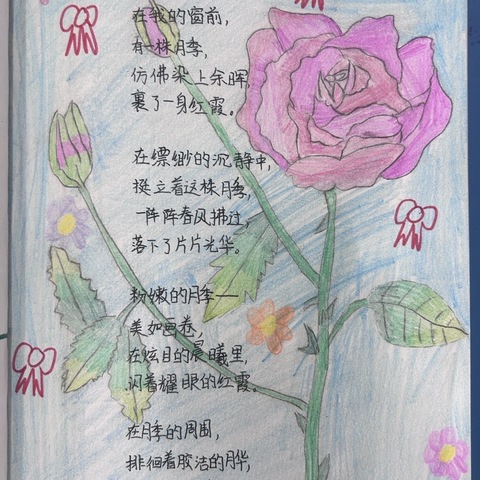 在我的窗前，
有一株月季，
仿佛染上余晖，
裹了一身红霞。
在缥缈的沉静中，
挺立着这株月季，
一阵阵春风拂过，
落下了片片光华。
粉嫩的月季——
美如画卷，
在炫目的晨曦里，
闪着耀眼的红霞。
在月季的周围，
徘徊着胶洁的月华，